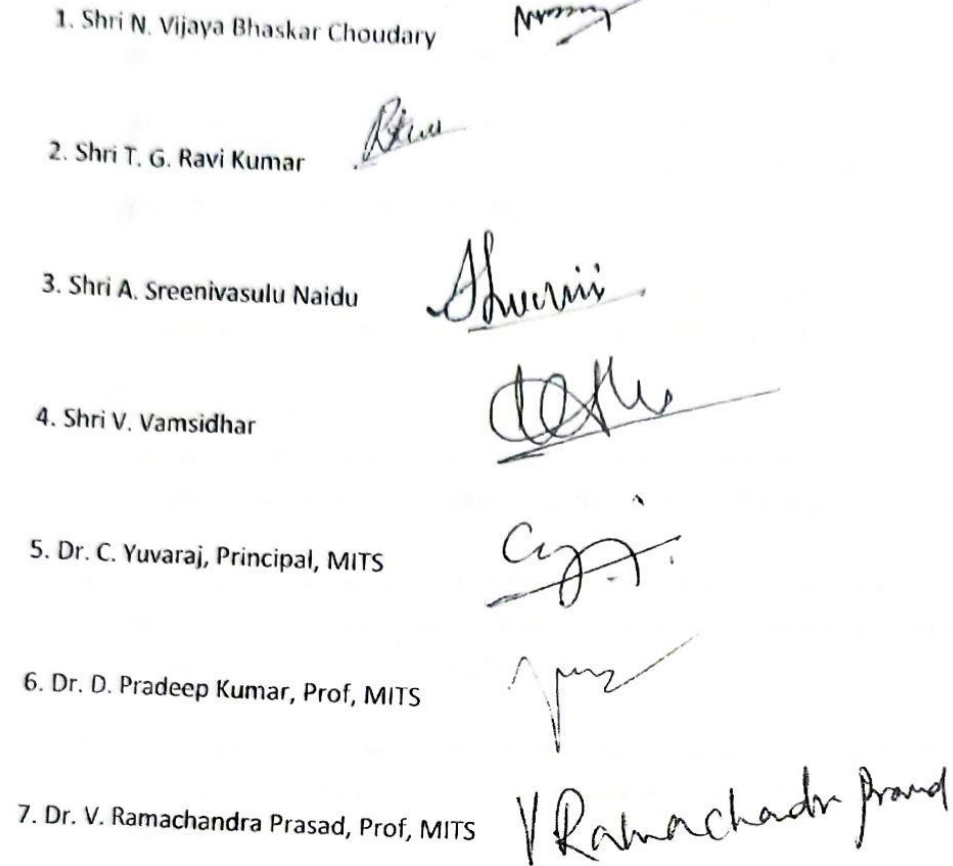 1. Shri N. Vijaya Bhaskar Choudary
2. Shri T. G. Ravi Kumar
3. Shri A. Sreenivasulu Naidu
4. Shri V. Vamsidhar
5. Dr. C. Yuvaraj, Principal, MITS
6. Dr. D. Pradeep Kumar, Prof, MITS
7. Dr. V. Ramachandra Prasad, Prof, MITS V Ramachandra Prasad